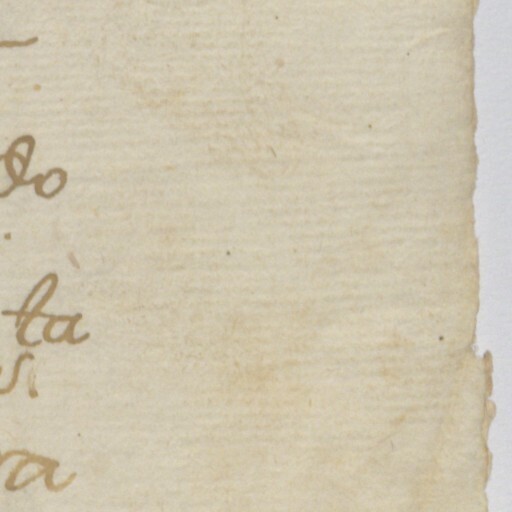 do
ta
s.
ra